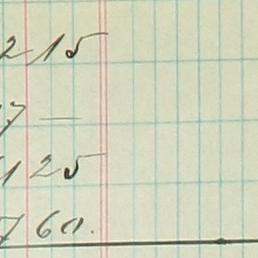 2 15
7 —
1 25
7 60.